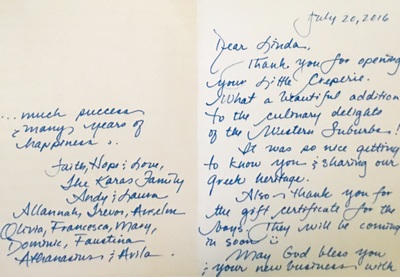 July 20, 2016
Dear Linda,
Thank you for opening
your Little Creperie.
What a beautiful addition
to the culinary delights
of the Western Suburbs!
It was so nice getting
to know you & sharing our
Greek heritage.
Also thank you for
the gift certificate for the
boys. They will be coming
in soon
May God bless you
& your new business with
...much success
& many years of
happiness..
Faith, Hope & Love,
The Karas Family
Andy & Laura
Allannah, Trevor, Anselm
Olivia, Francesca, Mary,
Dominic, Faustina
Athanasius & Avila.